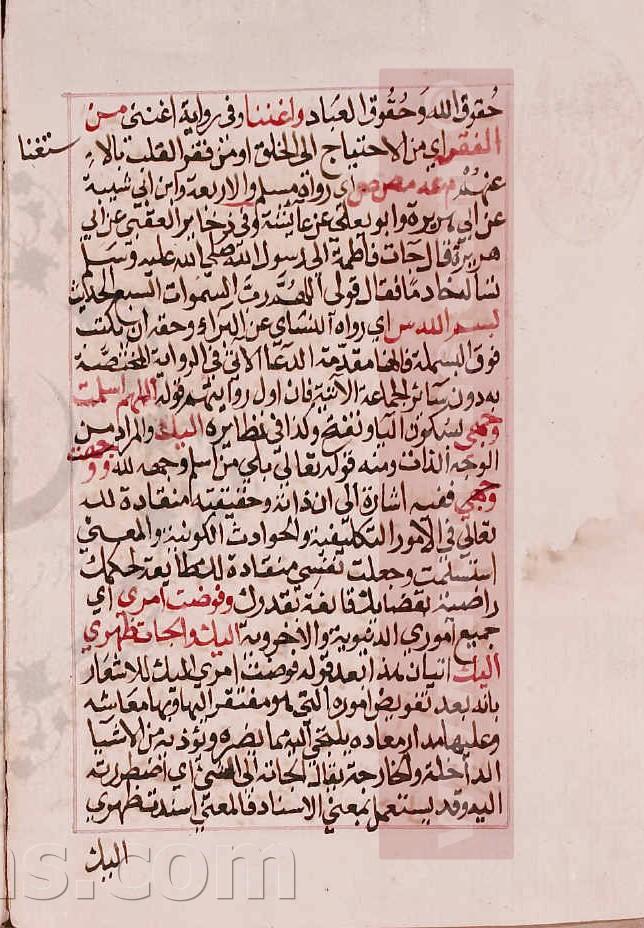 حُقوق الله وَحُقُوق العِبَاد واغننا وفى رواية اغننى من
الفقر اي من الاحتياج الى الخلق او من فقر القلب بالا
ستغنا
عنهم م عه مص ص اي رواه مسلم والاربعة وابن ابي شيبة
عن ابي هريرة وابو يعلى عن عايشة وفى ذخاير العقبي عن ابي
هريرة قال جات فاطمة الى رسول الله صلى الله عليه وسلم
تساله خادما فقال قولي اللهم رب السموات السبع الحديث
بسم الله س اي رواه النساي عن البراء وحقه ان يكتب
فوق البسملة فانها مقدمة الدعا الاتي فى الرواية المختصة
به دون سائر الجماعة الاتية فان اول روايتهم قوله اللهم اسلمت
وجهي بسكون اليا وتفتح وكذا فى نظايره اليك والمراد من
الوجه الذات ومنه قوله تعالى بلى من اسلم وجهه لله ووجهت
وجهي ففيه اشارة الى ان ذاته وحقيقته منقادة لله
تعالى في الامور التكليفية والحوادث الكونية والمعنى
استسلمت وجعلت نفسي منقادة لك طايعة لحكمك
راضية بقضايك قانعة بقدرك وفوضت امري اي
جميع اموري الدنيوية والاخروية اليك والجات ظهري
اليك اتيان هذا بعد قوله فوضت امري اليك للاشعار
بانه بعد تفويض اموره التي هو مفتقر اليها وبها معاشه
وعليها مدار معاده يلتجي اليه مما يضره ويؤذيه من الاشيا
الداخلة والخارجة يقال الجاته الى الشي اي اضطررته
اليه وقد يستعمل بمعنى الاسناد فالمعنى اسندت ظهري
اليك
ns.com